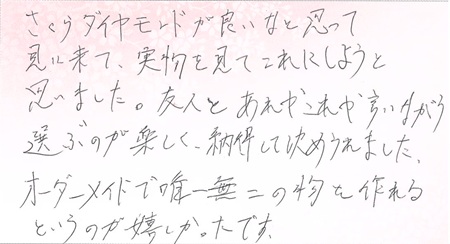 さくらダイヤモンドが良いなと思って
見に来て、実物を見てこれにしようと
思いました。友人とあれやこれや言いながら
選ぶのが楽しく、納得して決められました。
オーダーメイドで唯一無二の物を作れる
というのが嬉しかったです。